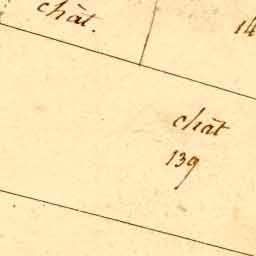 chât.
14
chât
139